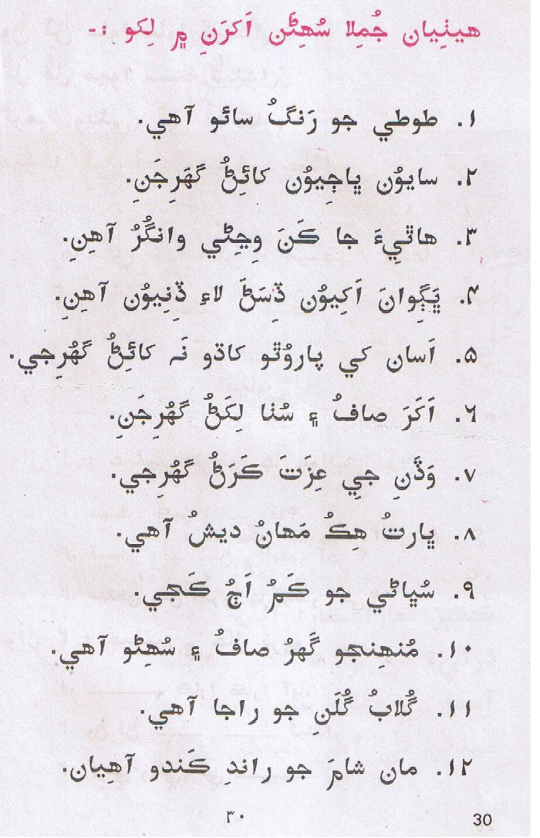 هيٺيان جُملا سُھِڻَن اَکرَنِ ۾ لِکو :-
۱. طوطي جو رَنگُ سائو آهي.
۲. سايوُن ڀاڄِيوُن کائِڻُ گهَرِجَنِ.
۳. هاٿِيءَ جا ڪَنَ وِڃِڻي وانگُرُ آهِنِ.
۴. ڀَڳِوانَ اَکِيوُن ڏِسَڻَ لاءِ ڏِنِيوُن آهِنِ.
۵. اَسان کي پاروُٿو کاڌو نَہ کائِڻُ گهُرِجي.
۶. اَکَرَ صافُ ۽ سُٺا لِکَڻُ گهُرِجَنِ.
۷. وَڏَنِ جِي عِزتَ ڪَرَڻُ گهُرِجي.
۸. ڀارتُ هِڪُ مَهانُ ديشُ آهي.
۹. سُڀاڻي جو ڪَمُ اَڄُ ڪَجي.
۱۰. مُنهِنجو گَهرُ صافُ ۽ سُهِڻو آهي.
۱۱. گُلابُ گُلَن جو راجا آهي.
۱۲. مان شامَ جو راندِ ڪَندو آهِيان.
۳۰ 30